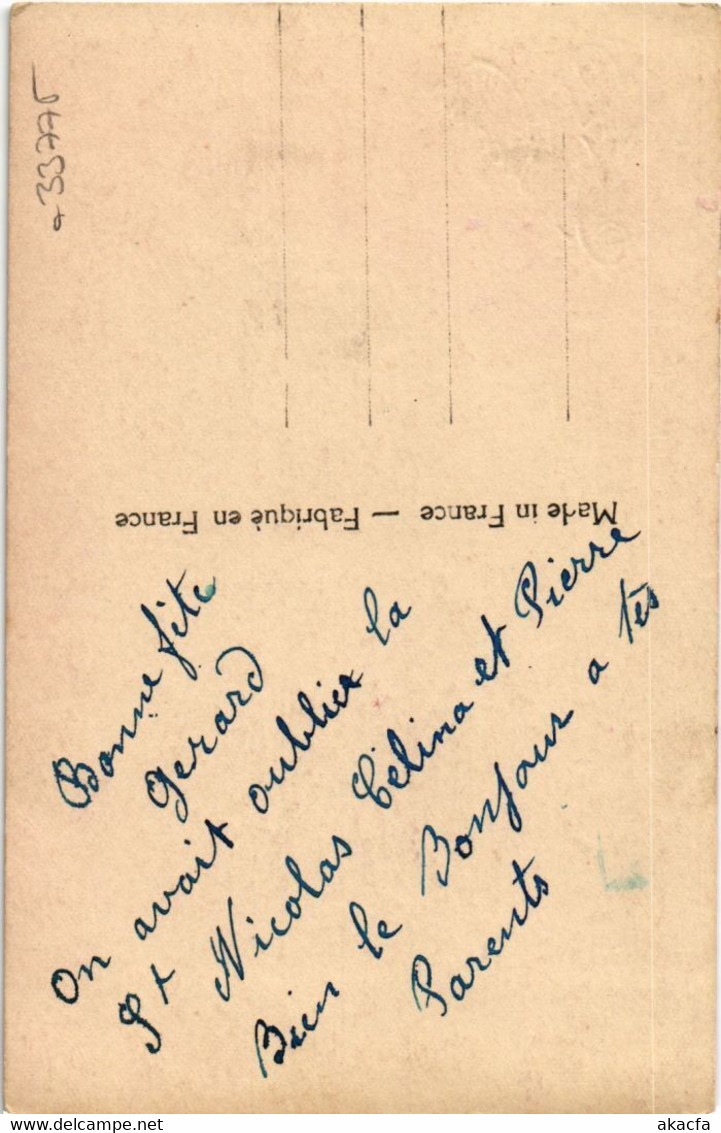 Made in France — Fabriqué en France
Bonne fête
Gerard
On avait oublier la
St Nicolas Célina et Pierre
Bien le Bonjour a tes
Parents
delcampe.net
akacfa